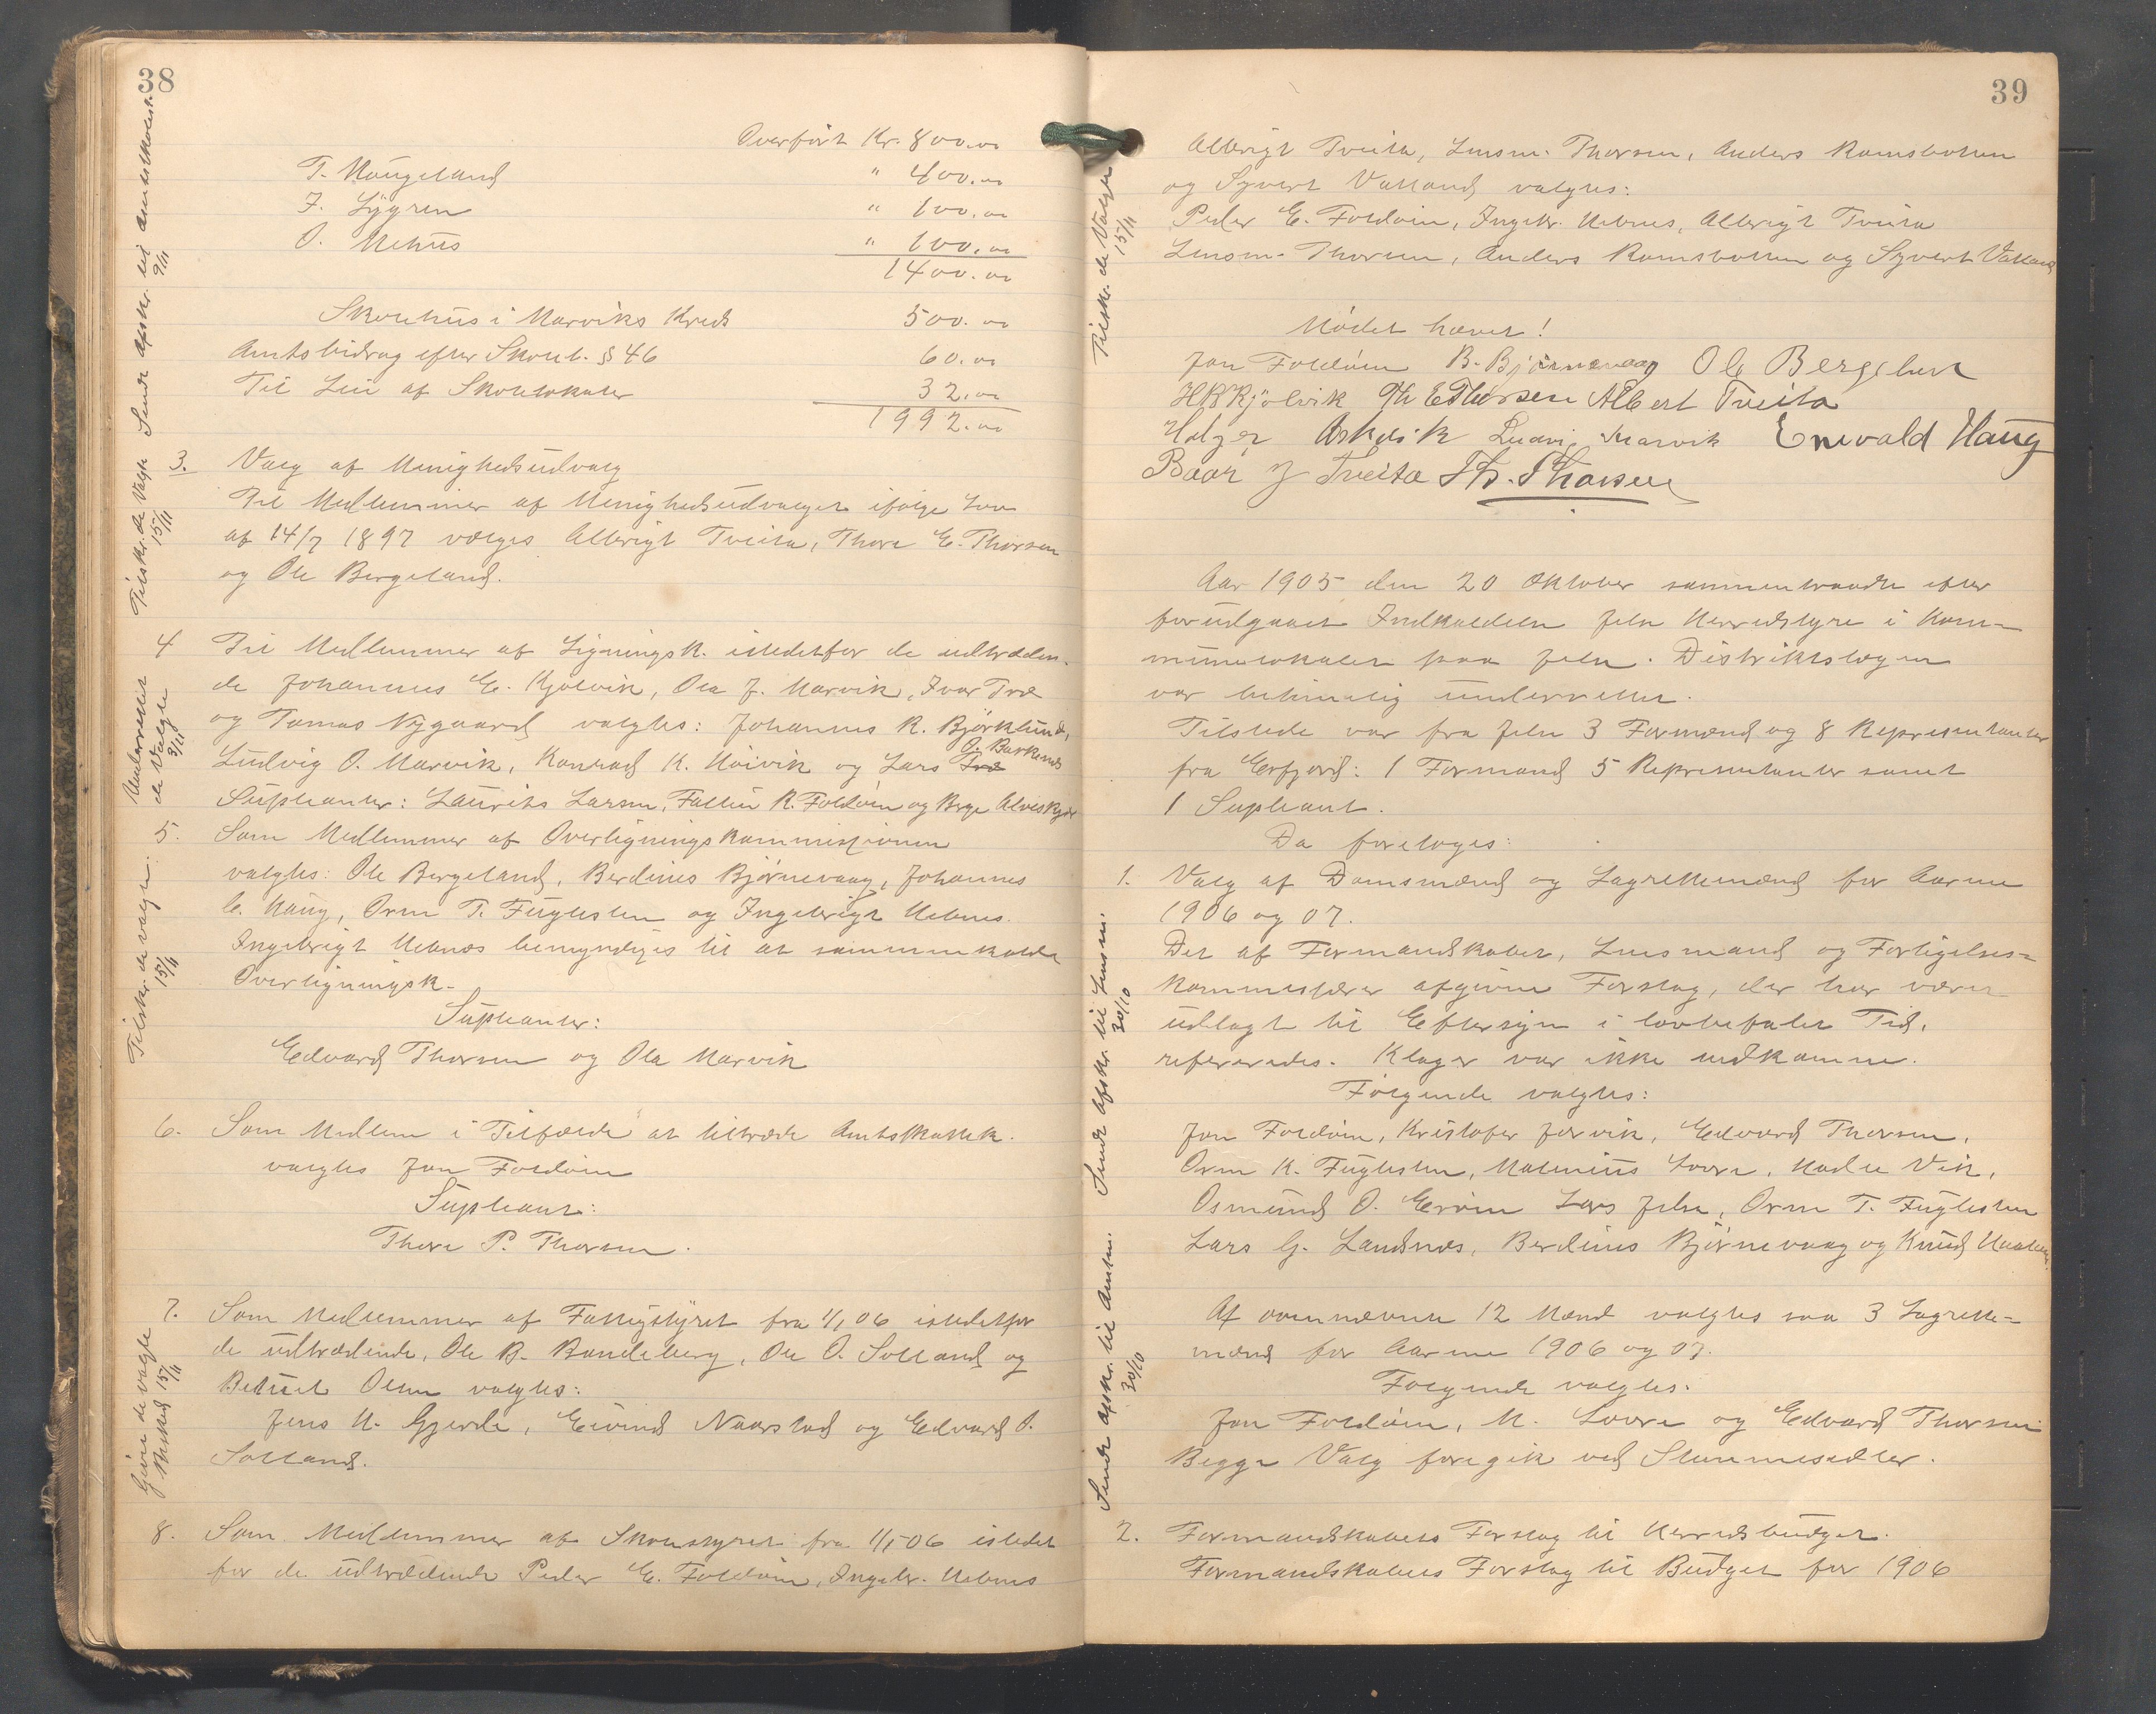 38
Overført Kr. 800.00
T. Haugeland " 400.00
J. Lygren " 100.00
O. Mehus " 100.00
1400.00
Skolehus i Marviks Kreds 500.00
Amtsbidrag efter Skolel. § 46 60.00
Til Leie af Skolelokaler 32.00
1992.00
3. Valg af Menighedsudvalg
Til Medlemmer af Menighedsudvalget ifølge Lov
af 14/7 1897 vælges Albrigt Tveita, Thore E. Thorsen
og Ole Bergeland.
4 Til Medlemmer af Ligningsk. istedetfor de udtræden-
de Johannes E. Kjølvik, Ola J. Marvik, Ivar Træ
og Tomas Nygaard valgtes: Johannes R. Bjørklund,
O. Barkeneds
Ludvig O. Marvik, Konrad K. Høivik og Lars Træ
Supleanter: Laurits Larsen, Fallin R. Foldøen og Berge Alveskjær
5. Som Medlemmer af Overligningskommissionen
valgtes: Ole Bergeland, Berdines Bjørnevaag, Johannes
C. Haug, Orm T. Fuglesten og Ingebrigt Hebnes.
Ingebrigt Hebnes bemyndiges til at sammenkalde
Overligningsk.
Supleanter:
Edvard Thorsen og Ola Marvik
6. Som Medlem i Tilfælde at tiltræde Amtsskattek.
valgtes Jon Foldøen
Supleant:
Thore P. Thorsen.
7. Som Medlemmer af Fattigstyret fra 1/1 06 istedetfor
de udtrædende, Ole B. Bandeberg, Ole O. Solland og
Betuel Olsen valgtes:
Jens H. Gjerde, Eivind Naarstad og Edvard O.
Solland.
8. Som Medlemmer af Skolestyret fra 1/1-06 istedet
for de udtrædende Peder E. Foldøen, Ingebr. Hebnes
Sendt Afskr. til Amtsskolest. 9/11
Tilskr. de Valgte 15/11
Underrettet de Valgte 3/11
Tilskr. de valgte: 15/11
Given de valgte Besked 15/11
39
Albrigt Tveita, Lensm. Thorsen, Anders Ramsbotten
og Syvert Vatland valgtes:
Peder E. Foldøen, Ingebr. Hebnes, Albrigt Tveita
Lensm. Thorsen, Anders Ramsbotten og Syvert Vatland
Mødet hævet!
Jon Foldøen B. Bjørnevaag Ole Bergeland
H K Kjølvik Th E Thorsen Albert Tveita
Holger Askvik Ludvig Marvik Enevald Haug
Baar J Tveita Th. Thorsen
Aar 1905 den 20 Oktober sammentraadte efter
forudgaaet Indkaldelse Jelse Herredstyre i Kom-
munelokalet paa Jelse. Distriktslægen
var betimelig underrettet.
Tilstede var fra Jelse 3 Formænd og 8 Representanter
fra Erfjord: 1 Formand 5 Representanter samt
1 Supleant.
Da foretoges:
1. Valg af Domsmænd og Lagrettemænd for Aarene
1906 og 07.
Det af Formandskabet, Lensmand og Forligelses-
kommissærer afgivne Forslag, der har været
udlagt til Eftersyn i lovbefalet Tid,
refereredes. Klager var ikke indkomne.
Følgende valgtes:
Jon Foldøen, Kristofer Jørvik, Edvard Thorsen,
Orm K. Fuglesten, Matenius Lovra, Nadle Vik,
Osmund O. Erøien Lars Jelse, Orm T. Fuglesten
Lars G. Landsnes, Berdines Bjørnevaag og Knud
Af ovennævnte 12 Mænd valgtes saa 3 Lagrette-
mænd for Aarene 1906 og 07.
Følgende valgtes.
Jon Foldøen, M. Lovra og Edvard Thorsen
Begge Valg foregik ved Stemmesedler.
2. Formandskabets Forslag til Herredsbudget.
Formandskabets Forslag til Budget for 1906
Tilskr. de Valgte 15/11
Sendt Afskr. til Lensm. 30/10
Sendt Afskr. til Amtm. 30/10